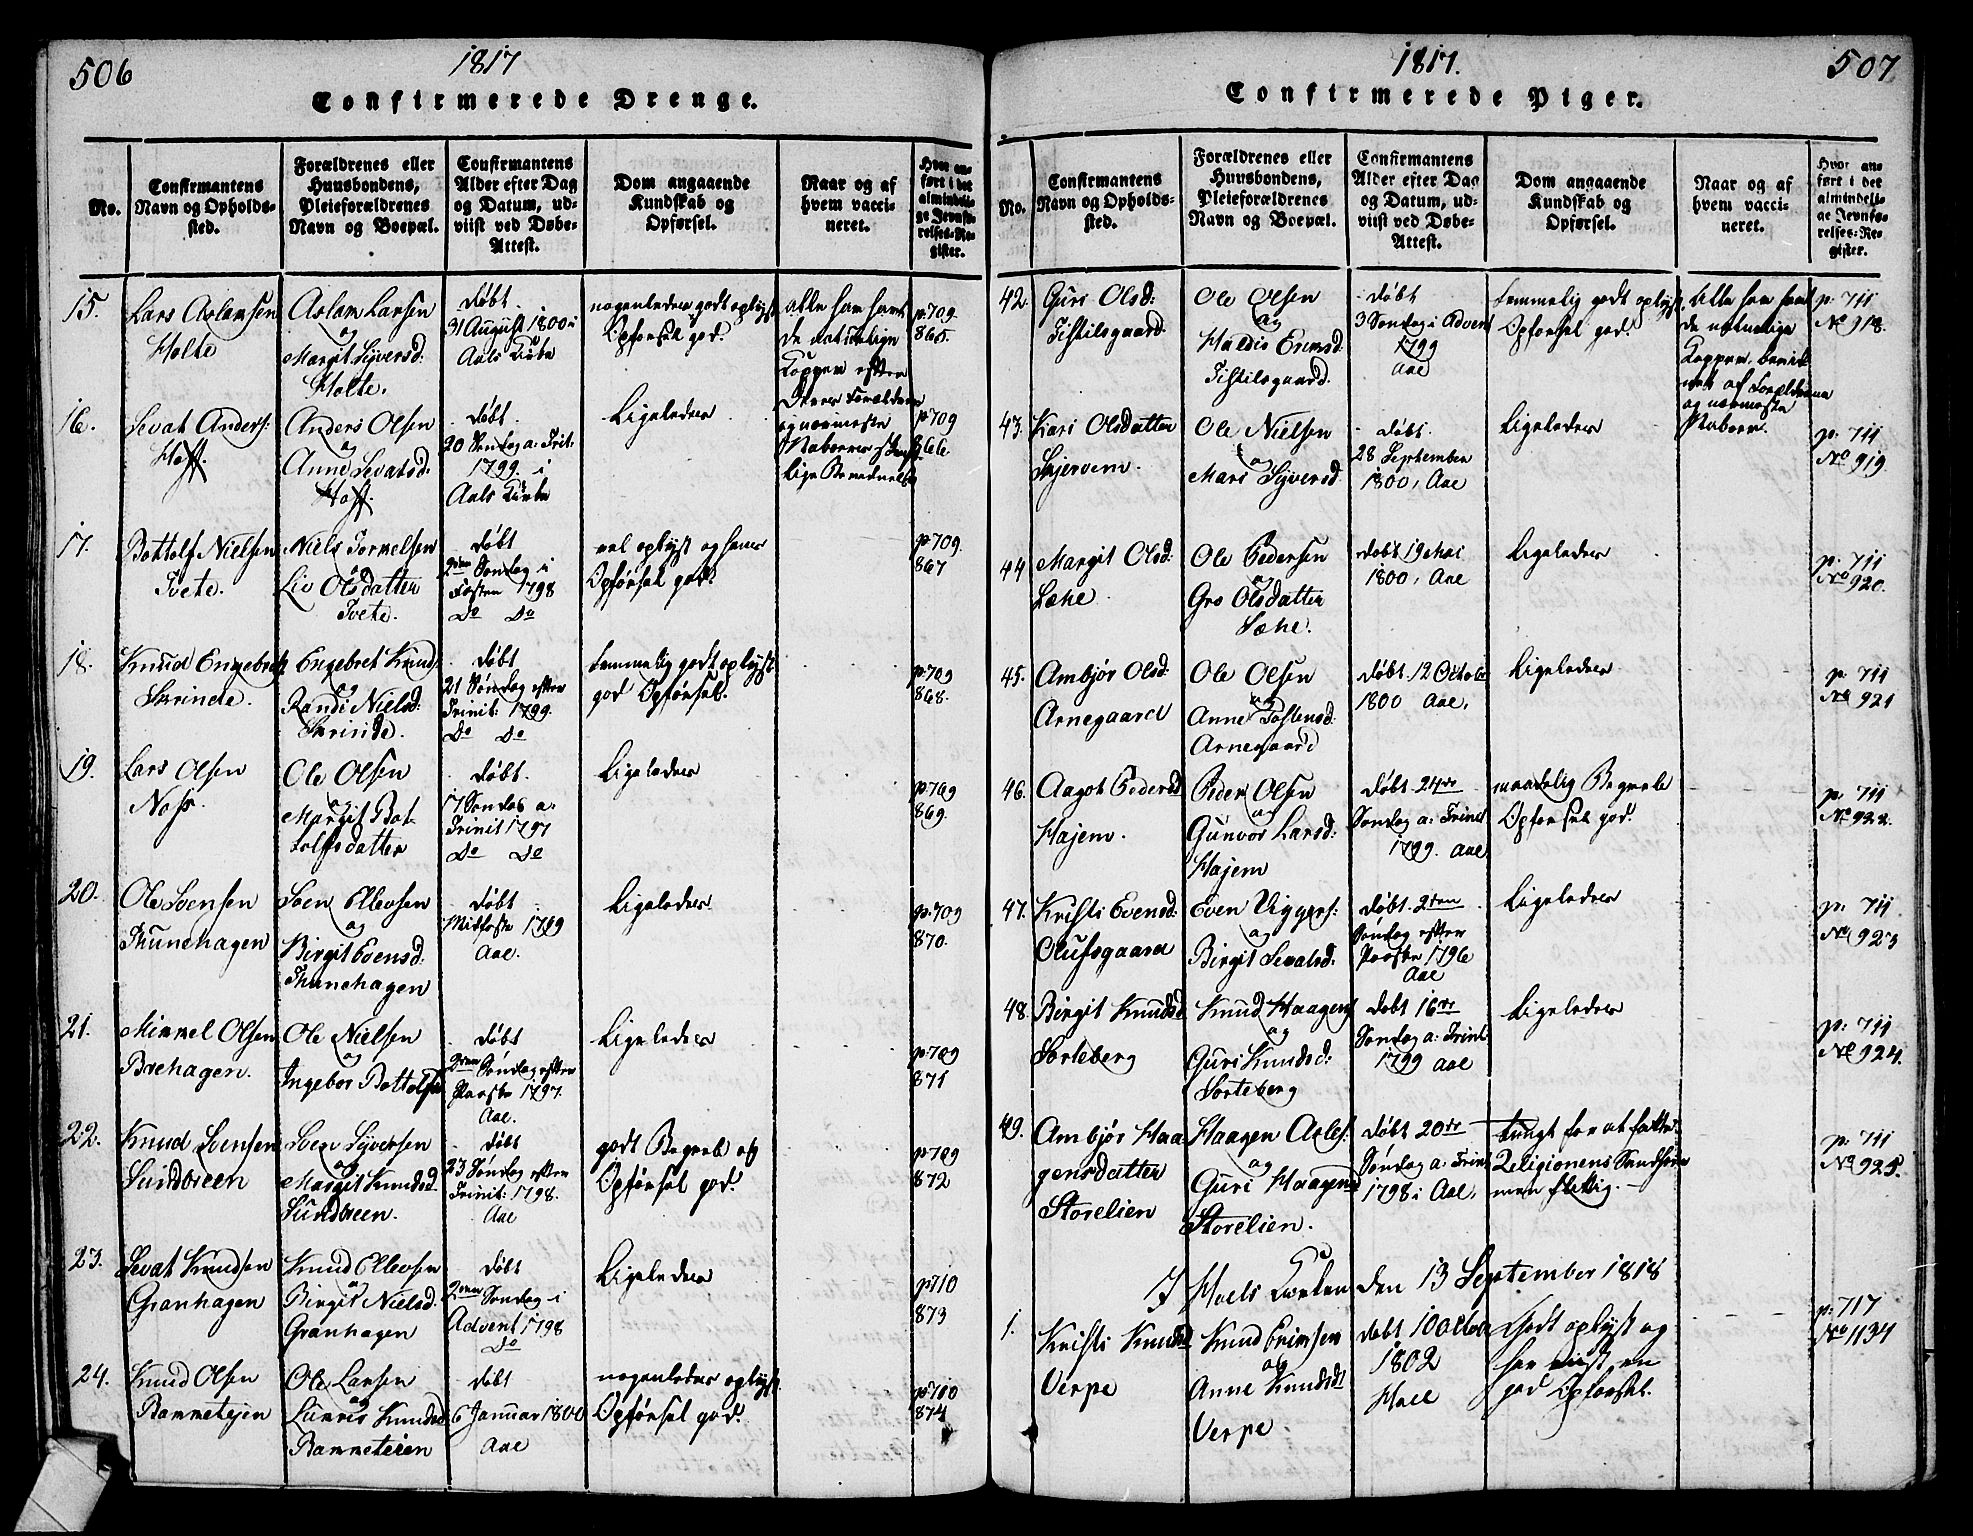 506
1817
Confirmerede Drenge.
No.
Confirmantens
Navn og Opholds-
sted.
Forældrenes eller
Huusbondens,
Pleieforældrenes
Navn og Boepæl.
Confirmantens
Alder efter Dag
og Datum, ud-
viist ved Døbe-
Attest.
Dom angaaende
Kundskab og
Opførsel.
Naar og af
hvem vacci-
neret.
Hvor an-
ført i det
almindeli-
ge Jevnfø-
relses-Re-
gister.
15.
Lars Aslamsen
Holte
Aslam Larsen
og
Margit Syversd:
Holte.
Døbt
31 August 1800 i
Aals Kirke
nogenledes godt oplyst
Opførsel god.
alle har havt
de naturlige
Kopper efter
Deres Forældres
og nærmeste
Naboers
lige Bevidnelse
p: 709
865.
16.
Sevat Anders:
Hoff.
Anders Olsen
og
Anne Sevatsd:
Hoff.
Døbt
20 Søndag a: Trit:
1799. i
Aals Kirke
Ligeledes
p: 709
866.
17.
Bottolf Nielsen
Tvete.
Niels
Liv Olsdatter
Tvete.
Døbt
Søndag i
Fasten 1798
Do Do
vel oplyst og hans
Opførsel god.
p: 709.
867
18.
Knud Engebrets
Skrinde.
Engebret Knuds:
og
Randi Nielsd:
Skrinde.
Døbt
21 Søndag efter
Trinit: 1799.
Do Do
temmelig godt oplyst
god Opførsel.
p: 709
868.
19.
Lars Olsen
Noss.
Ole Olsen
og
Margit Bot-
tolfsdatter
Døbt.
17 Søndag a:
Trinit 1797
Do Do
Ligeledes
p: 709
869.
20.
Ole Svensen
Thunehagen
Sven Ellevsen
og
Birgit Evensd:
Thunehagen
Døbt
Midfaste 1799
Aae.
Ligeledes
p: 709
870.
21.
Mimmel Olsen
Brehagen.
Ole Nielsen
og
Ingebor Bottolfsd
Døbt
Søndag efter
Paaske 1797.
Aae.
Ligeledes
p: 709
871
22.
Knud Svensen
Sundreen
Sven Syversen
og
Margit Knudsd
Sundreen.
Døbt
23 Søndag efter
Trinit: 1798.
Aae
godt Begreb og
Opførsel god.
p: 709
872
23.
Sevat Knudsen
Granhagen
Knud Ellevsen
og
Birgit Nielsd.
Granhagen
Døbt
2den Søndag i
Advent 1798
Do
Ligeledes
p: 710
873
24.
Knud Olsen
Rammeteien
Ole Larsen
og
Knudsd
Rammeteien
døbt
6 Januar 1800
Aae
nogenledes oplyst
Opførsel god.
p: 710
874
1817.
507
Confirmerede Piger.
No.
Confirmantens
Navn og Opholds-
sted.
Forældrenes eller
Huusbondens,
Pleieforældrenes
Navn og Boepæl.
Confirmantens
Alder efter Dag
og Datum, ud-
viist ved Døbe-
Attest.
Dom angaaende
Kundskab og
Opførsel.
Naar og af
hvem vacci-
neret.
Hvor an-
ført i det
almindeli-
ge Jevnfø-
relses-Re-
gister.
42.
Guri Olsd:
Tistilsgaard.
Ole Olsen
og
Haldis
Tistilsgaard.
døbt
3 Søndag i Advent
1799
Aae
temmelig godt oplyst
Opførsel god.
Alle har havt
de naturlige
Kopper,
af Forældrene
og nærmeste
Naboer.
p: 711
No 918.
43.
Kari Olsdatter
Skjervem.
Ole Nielsen
og
Mari Syversd.
døbt.
28 September
1800, Aae
Ligeledes
p: 711
No 919
44
Margit Olsd:
Læhe.
Ole Pedersen
og
Gro Olsdatter
Læhe.
døbt 19 Mai
1800, Aae
Ligeledes
p: 711
No 920.
45.
Ambjør Olsd.
Arnegaard
Ole Olsen
og
Anne Tostensd.
Arnegaard
Døbt 12 Octob:
1800 Aae.
Ligeledes
p: 711
No 921
46.
Aagot Pedersd
Hajem.
Peder Olsen
og
Gunvor Larsd:
Hajem
Døbt 24de
Søndag a: Trinit
1799. Aae
maadelig Begreb
Opførsel god.
p: 711
No 922.
47.
Kristi Evensd:
Olufsgaard
Even Viggers:
og
Birgit Sevatsd:
Døbt 2den
Søndag efter
Paaske 1796
Aae
Ligeledes
p: 711
No 923
48.
Birgit Knudsd
Sorteberg
Knud Haagens
og
Guri Knudsd:
Sorteberg
Døbt 16de
Søndag a: Trinit
1799 Aae
Ligeledes
p: 711
No 924.
49.
Ambjør Haa-
gensdatter
Storelien
Haagen Asles:
og
Guri Haagens
Storelien.
Døbt 20de
Søndag a: Trinit
1798 i Aae.
tungt for at fatte
Religionens Sandheder
men flittig.
p: 711
No 925.
I Hoels Kirken den 13 September 1818
1.
Kristi Knudsd
Verpe
Knud
og
Anne Knudsd
Verpe
døbt 10 Octob
1802
Hoel
Godt oplyst og
har viist en
god Opførsel.
p: 717
No 1134